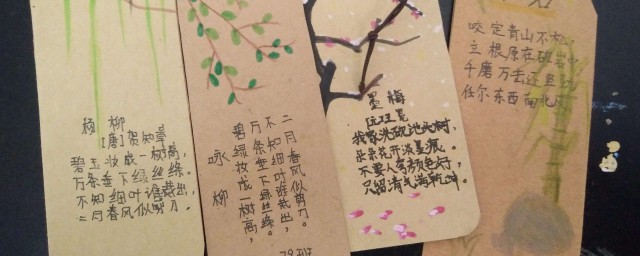 杨 柳
[唐]贺知章
碧玉妆成一树高,
万条垂下绿丝绦.
不知细叶谁裁出,
二月春风似剪刀.
咏柳
碧绿妆成一树高,
万条垂下绿丝绦。
不知细叶谁裁出,
二月春风似剪刀。
墨 梅
王冕
我家洗砚池头树,
朵朵花开淡墨痕。
不要人夸颜色好,
只留清气满乾坤。
咬定青山不
立根原在破岩中
千磨万击还坚
任尔东西南北风